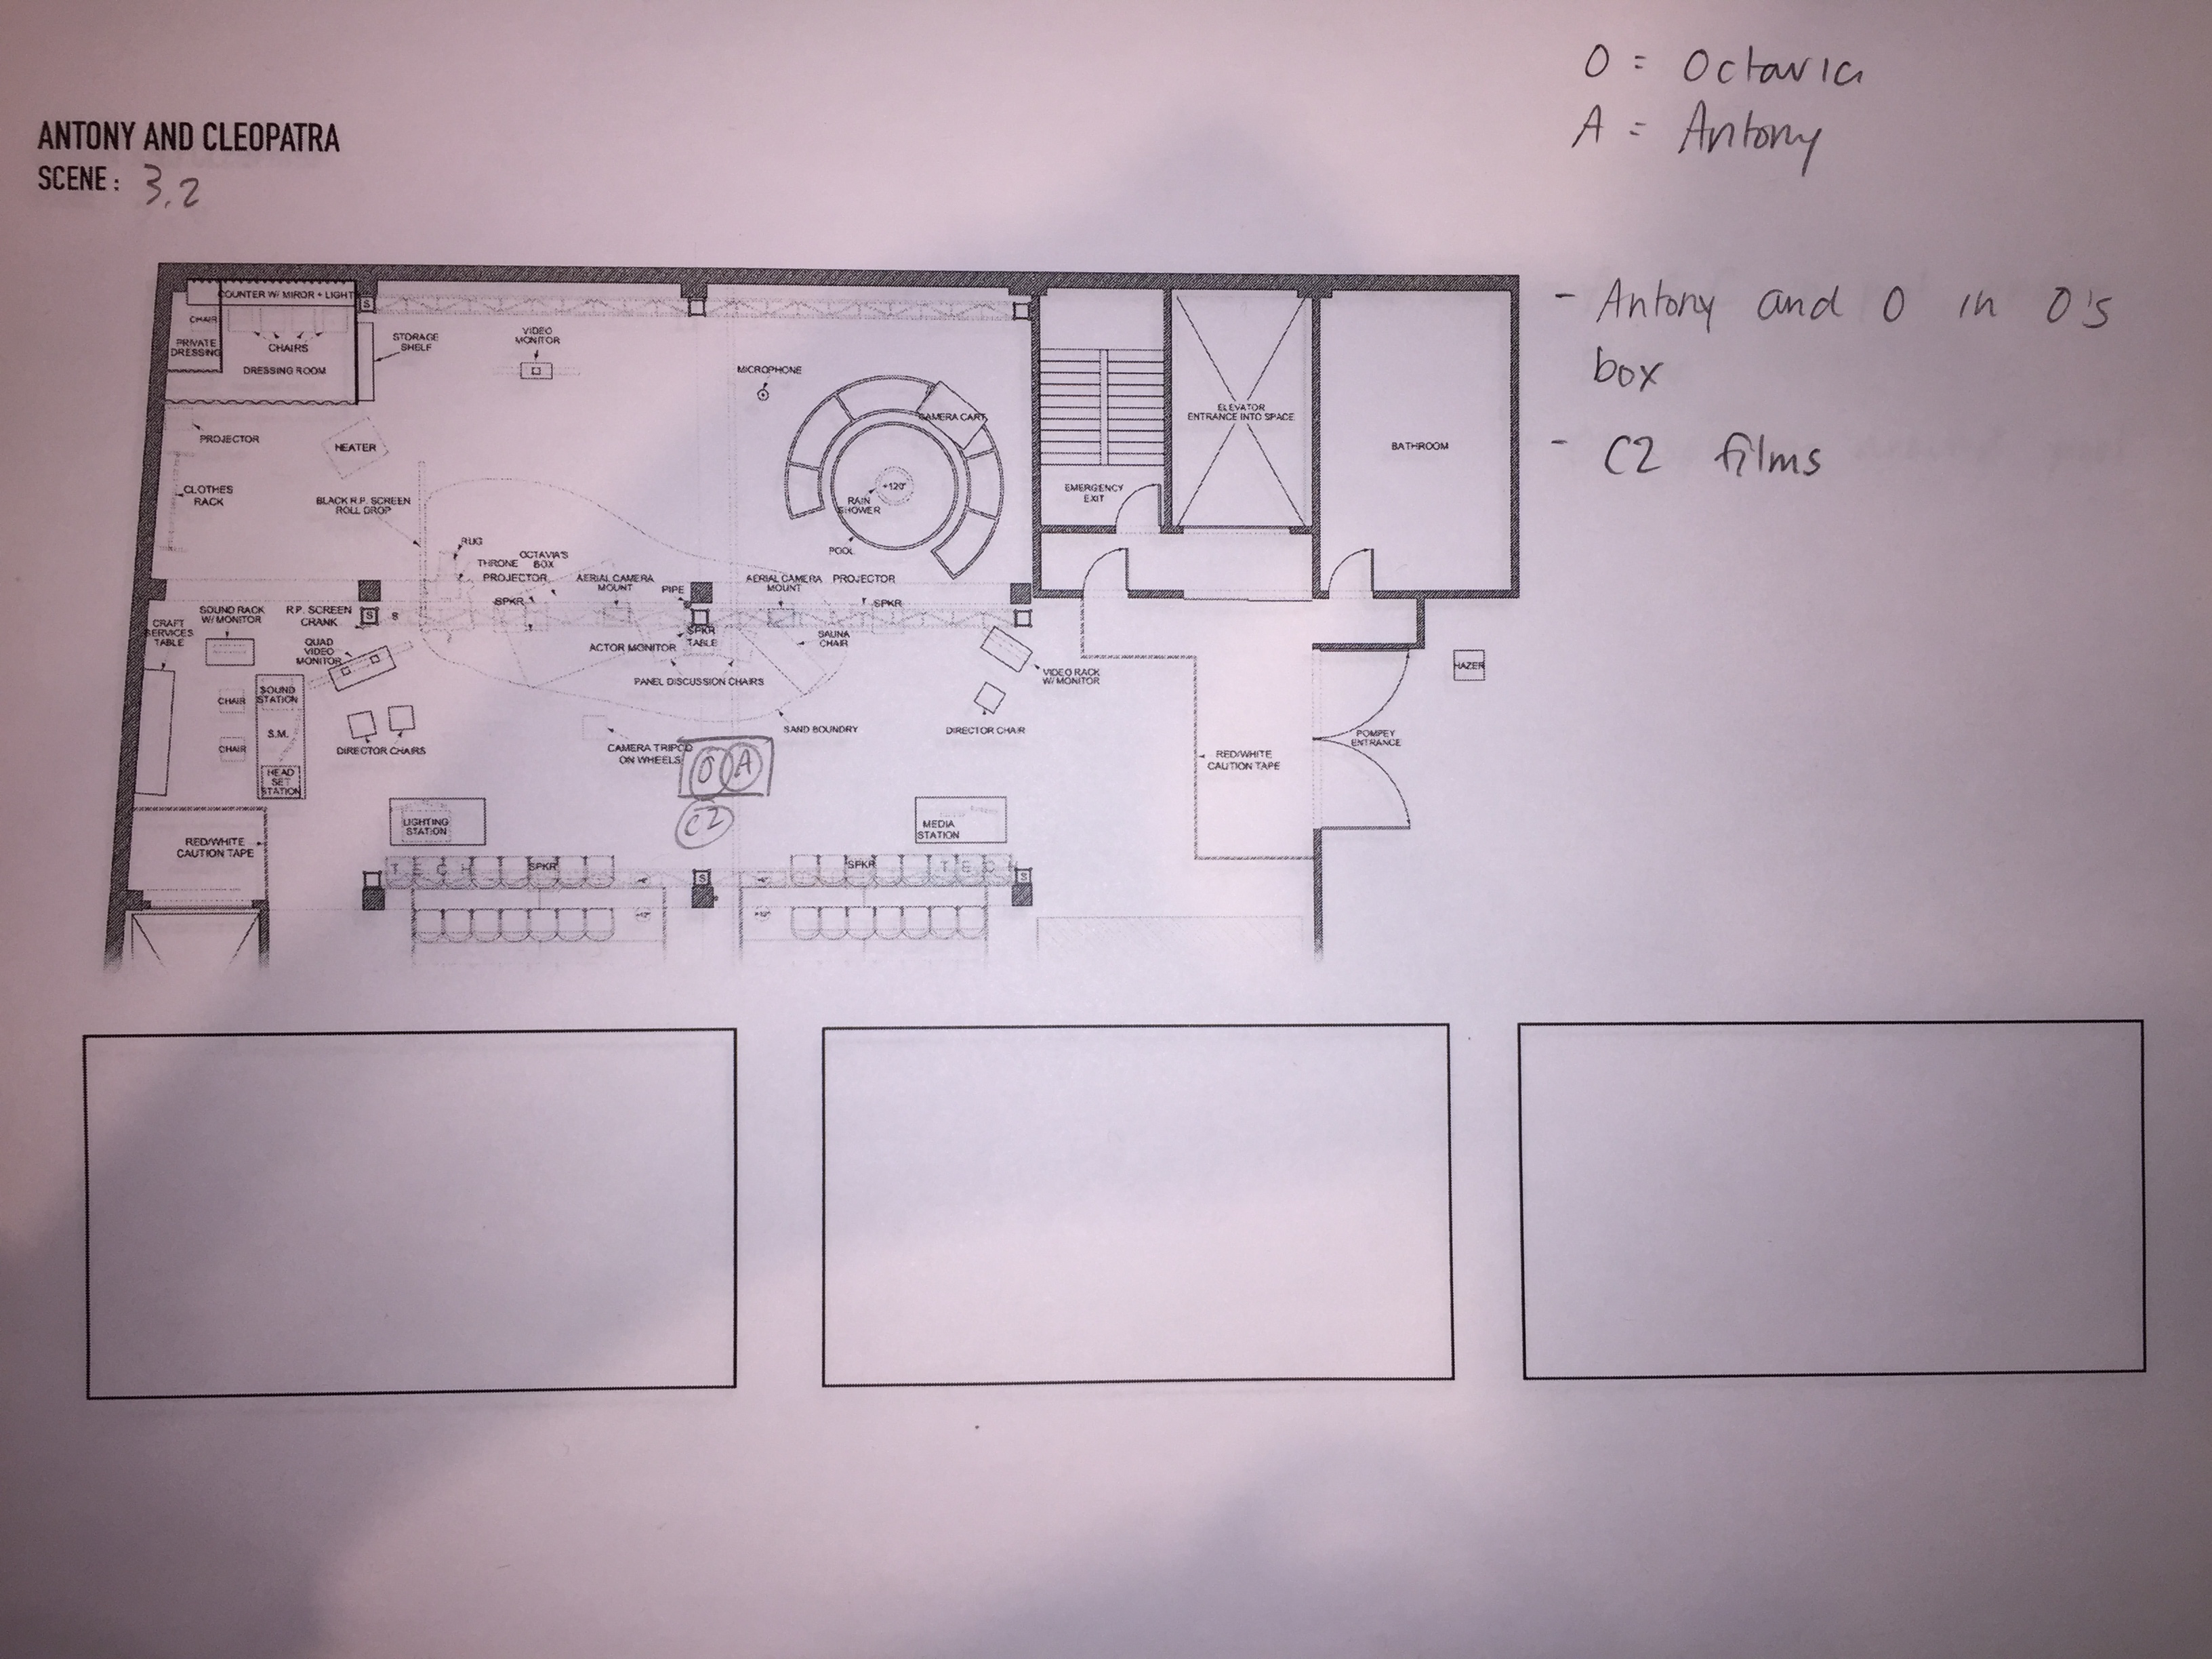 O = Octavia
A = Antony
ANTONY AND CLEOPATRA
SCENE: 3.2
- Antony and O in O's
box
- C2 films
COUNTER W/ MIROR + LIGHT
S
CHAIR
PRIVATE
DRESSING
CHAIRS
DRESSING ROOM
STORAGE
SHELF
VIDEO
MONITOR
MICROPHONE
CAMERA CART
ELEVATOR
ENTRANCE INTO SPACE
BATHROOM
PROJECTOR
HEATER
CLOTHES
RACK
BLACK R.P. SCREEN
ROLL DROP
+120"
RAIN
SHOWER
POOL
EMERGENCY
EXIT
RUG
THRONE
OCTAVIA'S
BOX
PROJECTOR
AERIAL CAMERA
MOUNT
PIPE
AERIAL CAMERA
MOUNT
PROJECTOR
SPKR
SPKR
SOUND RACK
W/ MONITOR
R.P. SCREEN
CRANK
S
S
CRAFT
SERVICES
TABLE
QUAD
VIDEO
MONITOR
ACTOR MONITOR
SPKR
TABLE
SAUNA
CHAIR
PANEL DISCUSSION CHAIRS
VIDEO RACK
W/ MONITOR
HAZER
CHAIR
SOUND
STATION
S.M.
CHAIR
HEAD
SET
STATION
DIRECTOR CHAIRS
CAMERA TRIPOD
ON WHEELS
SAND BOUNDRY
DIRECTOR CHAIR
O A
C2
RED/WHITE
CAUTION TAPE
POMPEY
ENTRANCE
LIGHTING
STATION
MEDIA
STATION
RED/WHITE
CAUTION TAPE
TECH
SPKR
S
SPKR
TECH
S